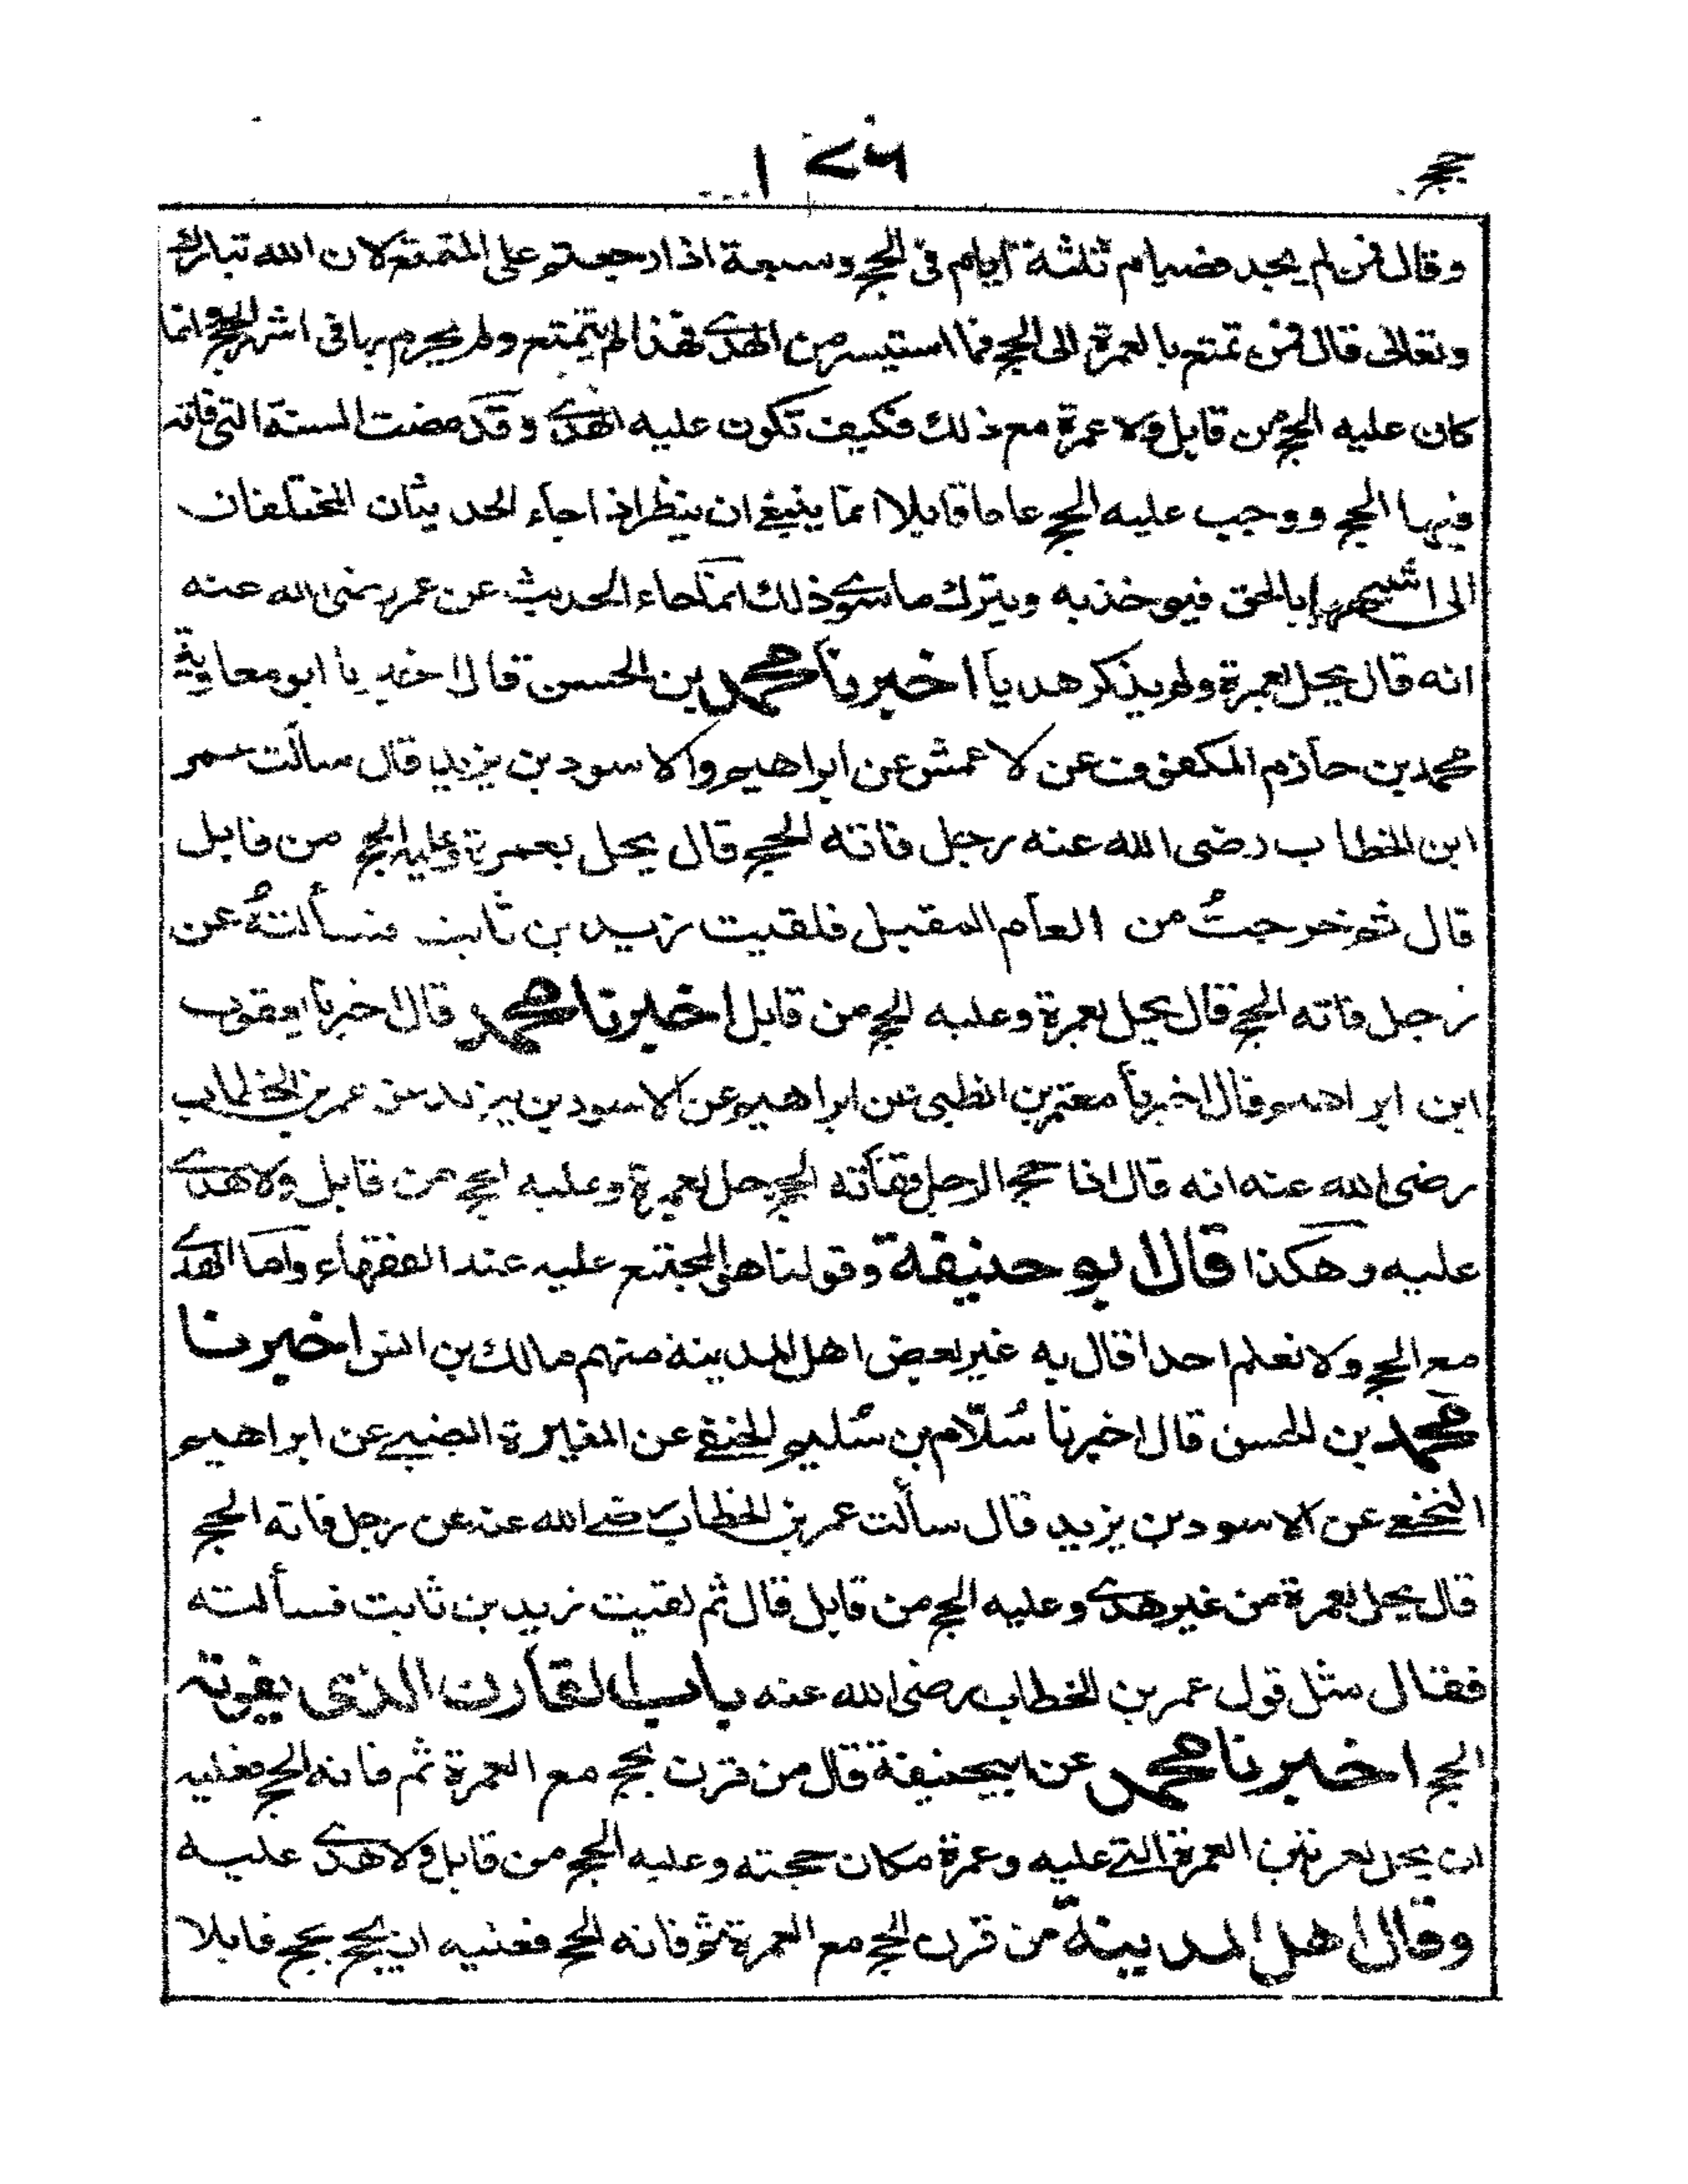 حج
وقال فمن لم يجد فصيام ثلثة ايام فى الحج وسبعة اذا رجعتم على المتمتع لان الله تبارك
وتعالى قال فمن تمتع بالعمرة الى الحج فما استيسر من الهدى فهذا لم يتمتع ولم يحرم بها فى اشهر الحج وانما
كان عليه الحج من قابل ولا عمرة مع ذلك فكيف تكون عليه الهدى وقد مضت السنة التى فاته
فيها الحج ووجب عليه الحج عاما قابلا انما ينبغى ان ينظر اذا جاء الحديثان المختلفان
الى اشبههما بالحق فيوخذ به ويترك ما سوى ذلك انما جاء الحديث عن عمر رضى الله عنه
انه قال يحل بعمرة ولم يذكر هديا اخبرنا محمد بن الحسن قال اخبرنا ابو معاوية
محمد بن حازم المكفوف عن الاعمش عن ابراهيم والاسود بن يزيد قال سألت عمر
ابن الخطاب رضى الله عنه رجل فاته الحج قال يحل بعمرة وعليه الحج من قابل
قال ثم خرجتُ من العام المقبل فلقيت زيد بن ثابت فسألتهُ عن
رجل فاته الحج قال يحل بعمرة وعليه الحج من قابل اخبرنا محمد قال اخبرنا يعقوب
ابن ابراهيم قال اخبرنا معتمر بن الظبى عن ابراهيم عن الاسود بن يزيد عن عمر بن الخطاب
رضى الله عنه انه قال اذا حج الرجل ففاته الحج حل بعمرة وعليه الحج من قابل ولا هدى
عليه وهكذا قال ابو حنيفة وقولنا هو المجتمع عليه عند الفقهاء واما الهدى
مع الحج ولا نعلم احدا قال به غير بعض اهل المدينة منهم مالك بن انس اخبرنا
محمد بن الحسن قال اخبرنا سُلّام بن سُليم الحنفى عن المغيرة الضبى عن ابراهيم
النخعى عن الاسود بن يزيد قال سألت عمر بن الخطاب رضى الله عنه عن رجل فاته الحج
قال يحل بعمرة من غير هدى وعليه الحج من قابل قال ثم لقيت زيد بن ثابت فسألته
فقال مثل قول عمر بن الخطاب رضى الله عنه باب القارن الذى يفوته
الحج اخبرنا محمد عن ابيحنيفة قال من قرن بحج مع العمرة ثم فاته الحج فعليه
ان يحل بعمرتين العمرة التى عليه وعمرة مكان حجته وعليه الحج من قابل ولا هدى عليه
وقال اهل المدينة من قرن الحج مع العمرة ثم فاته الحج فعليه ان يحج بحج قابلا